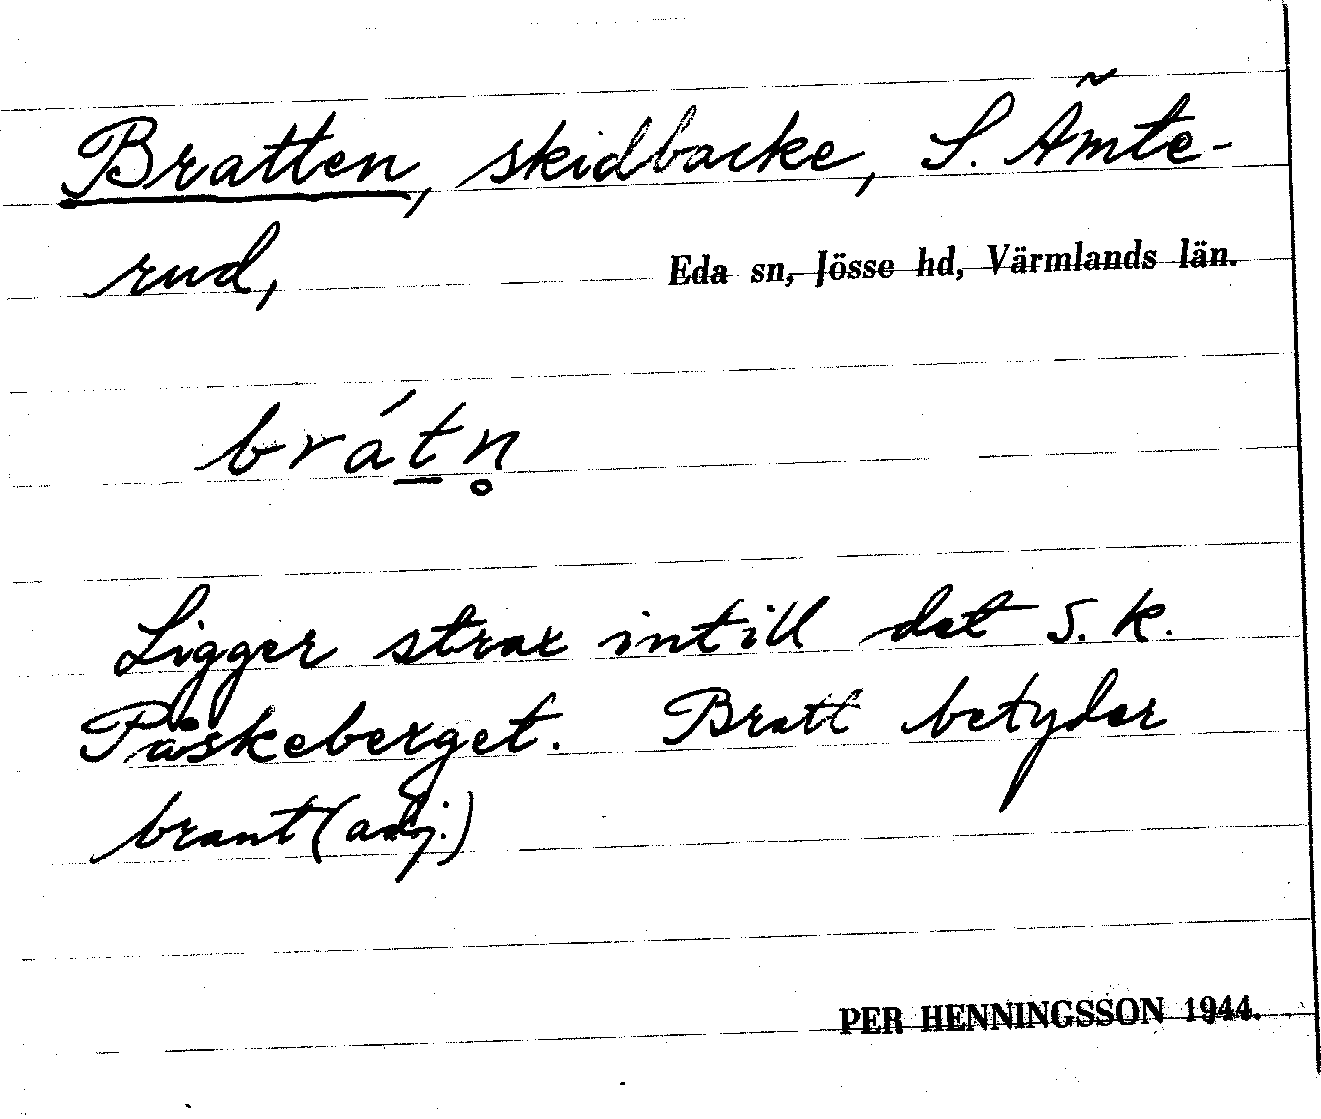 Bratten, skidbacke, S. Ämte-
rud,
Eda sn, Jösse hd, Värmlands län.
brátn̥
Ligger strax intill det s.k.
Påskeberget. Bratt betyder
brant (adj.)
PER HENNINGSSON 1944.